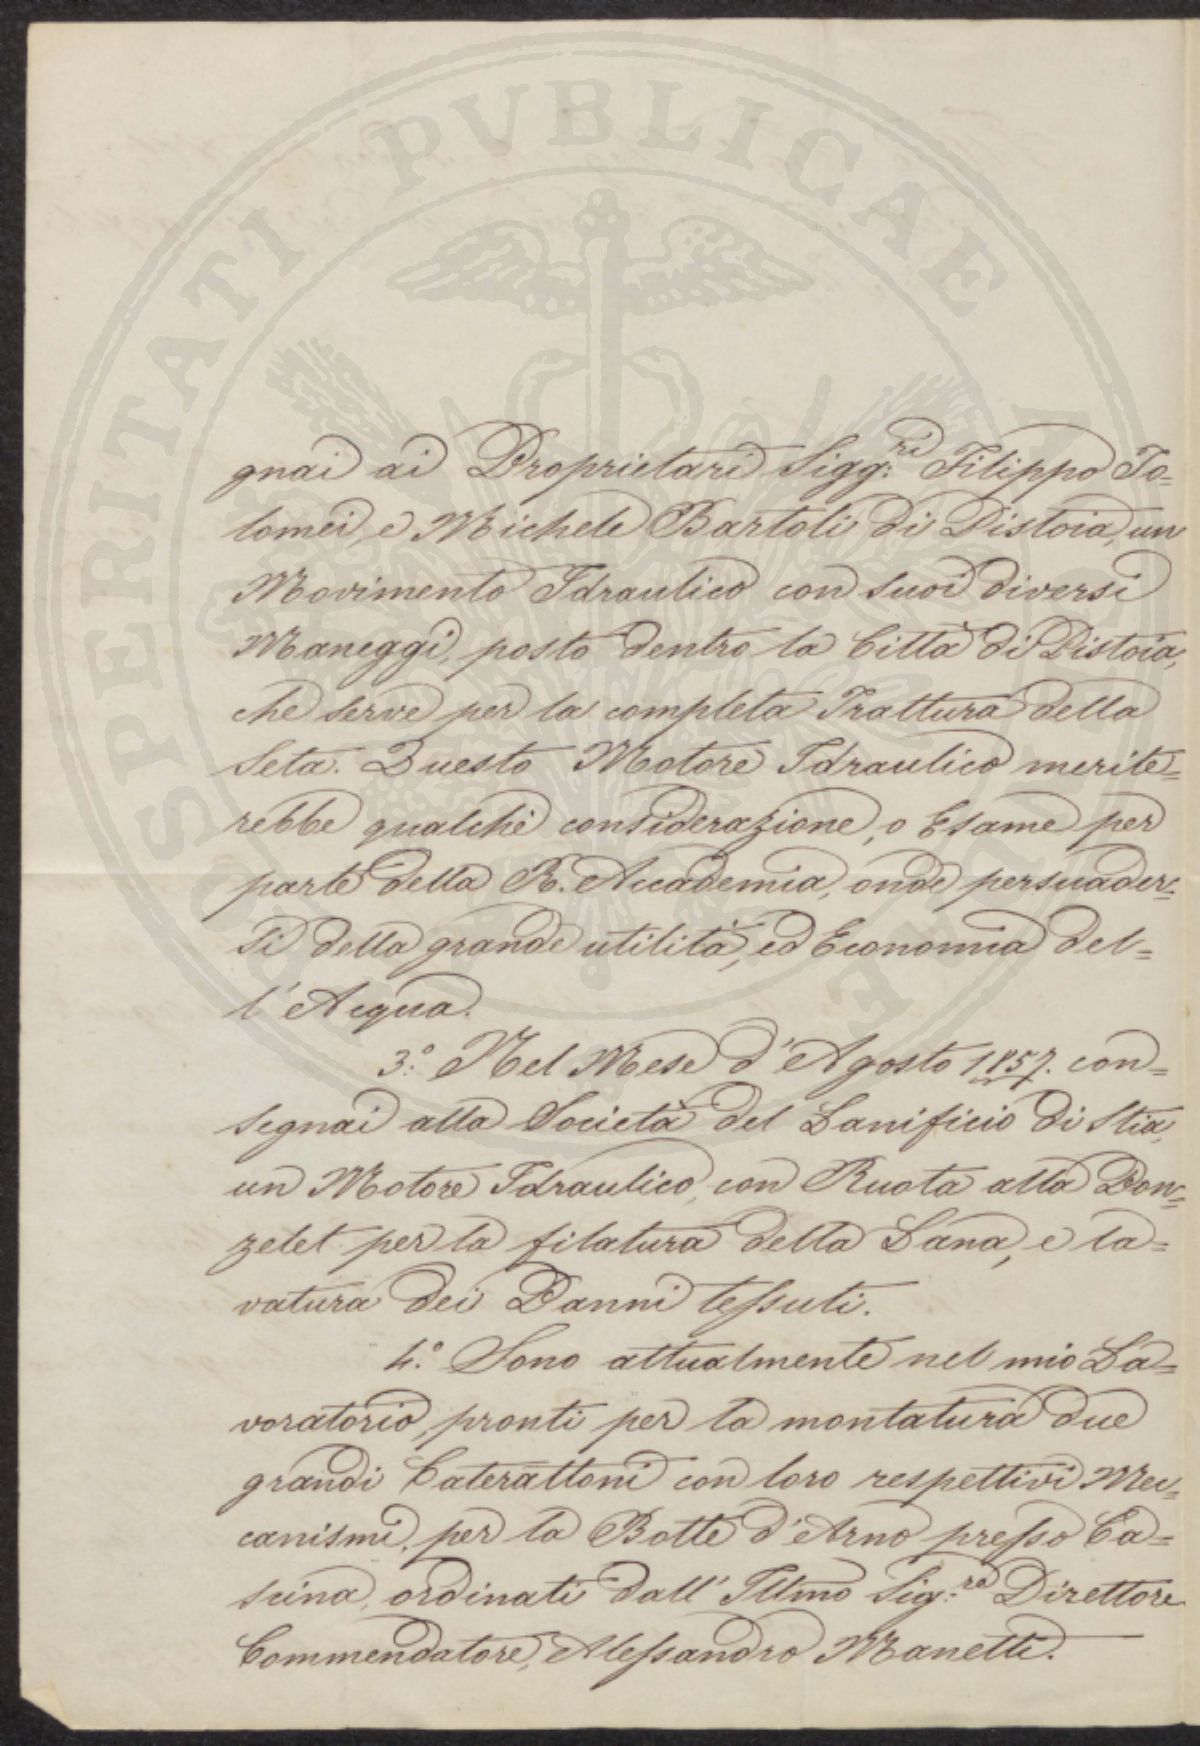 PROSPERITATI PVBLICAE AVGENDAE
gnai ai Proprietari Sigg:ri Filippo To=
lomei, e Michele Bartoli di Pistoia, un
Movimento Idraulico con suoi diversi
Maneggi, posto dentro la Città di Pistoia,
che serve per la completa Trattura della
Seta. Questo Motore Idraulico merite=
rebbe qualche considerazione, o Esame per
parte della R. Accademia, onde persuader=
si della grande utilità, ed Economia del=
l'Acqua.
3.º Nel Mese d'Agosto 1857. con=
segnai alla Società del Lanificio di Stia,
un Motore Idraulico, con Ruota alla Pon=
zelet per la filatura della Lana, e la=
vatura dei Panni tessuti.
4.º Sono attualmente nel mio La=
voratorio, pronti per la montatura due
grandi Caterattoni con loro respettivi Mec=
canismi, per la Botte d'Arno presso Ca=
scina, ordinati dall' Illmo Sig:re Direttore
Commendatore, Alessandro Manetti.